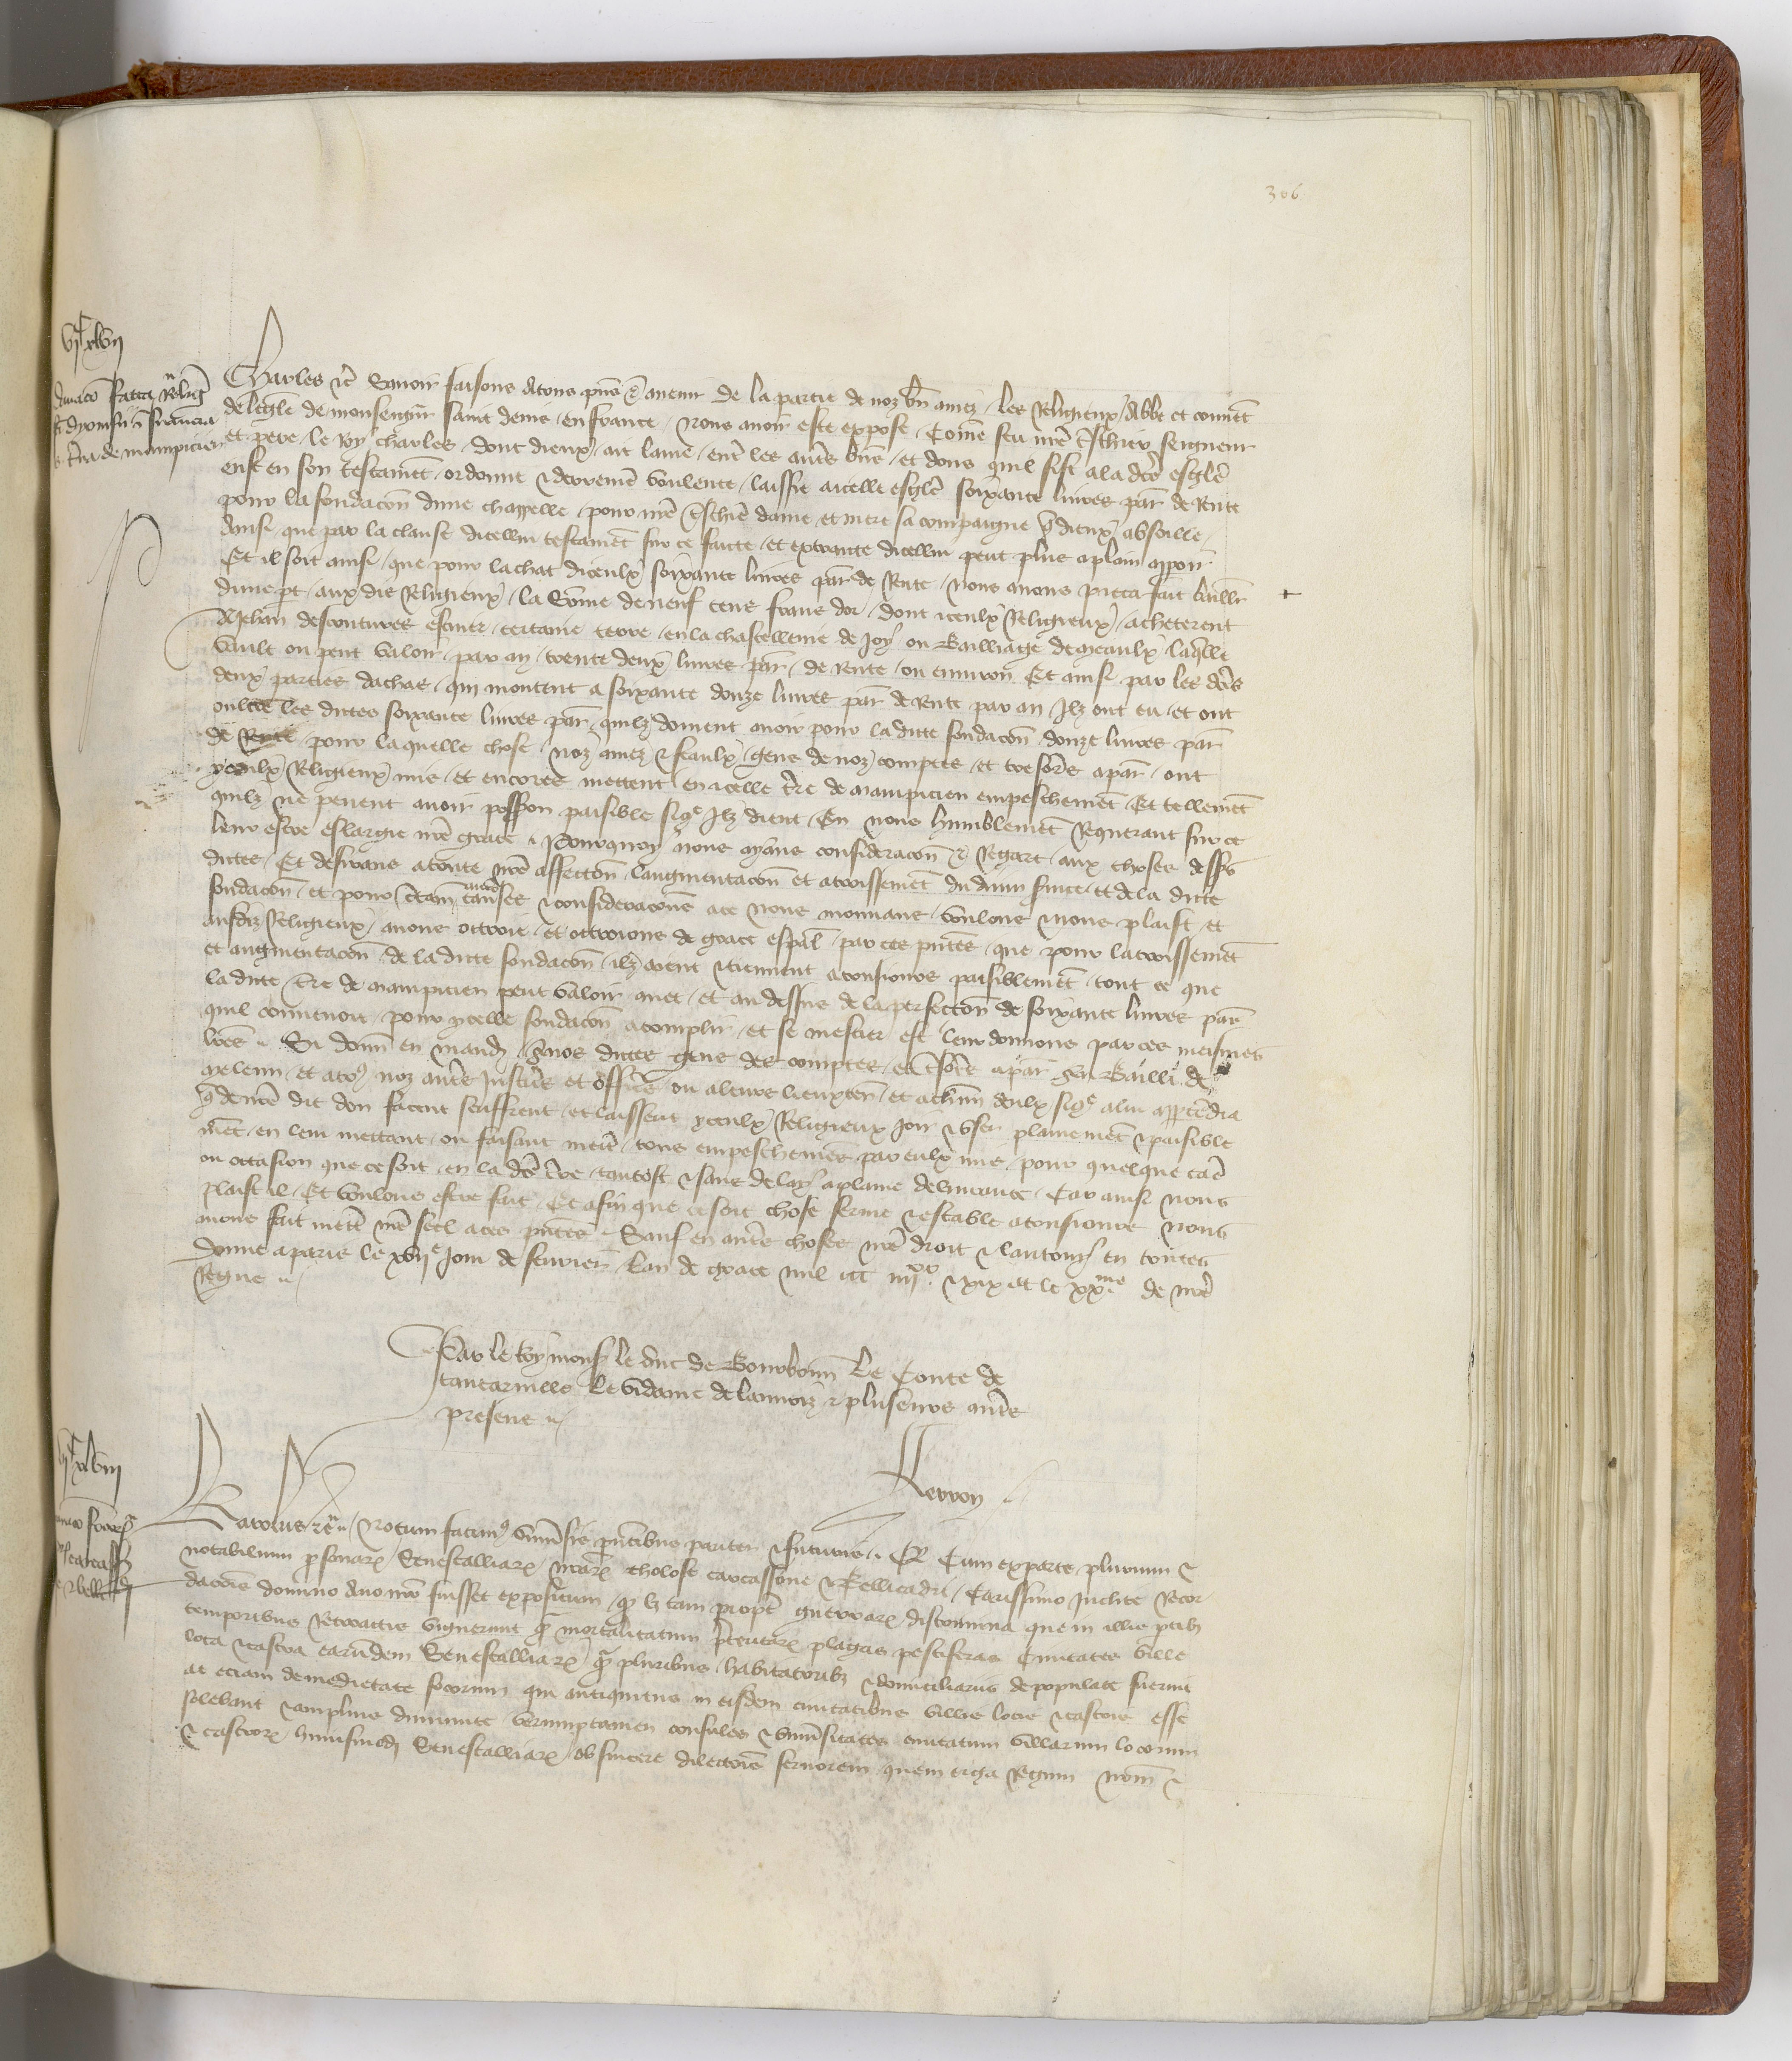 306
vjc xlvij
donacio facta Relig
sci dyonisii in francia
terra de mampicien
Charles etc Savoir faisons a tous pns et avenir De la partie de noz bn amez les Religieux Abbe et convent
de leglise de monseigneur saint denis en france Nous avoir este expose Comme feu nre treschier seigneur
et pere le Roy charles dont dieux ait lame entre les autres biens et dons quil fist a la dicte esglise
eust en son testament ordonne et derreniere voulente laissie a icelle esglise soixante livres par de Rente
pour la fondacion dune chappelle pour nre treschiere dame et mere sa compaigne que dieux absoille
Ainsi que par la clause dicellui testament sur ce faicte et extraicte dicellui peut plus aplain apparoir
Et il soit ainsi que pour lachat diceulx soixante livres par de Rente Nous avons pieca fait baillier
dune pt aux diz Religieux la Somme de neuf cens frans dor dont iceulx Religieux acheterent
de Jehan descoutures escuier certaine terre en la chastellenie de Joy ou Bailliage de meaulx laquelle
vault ou peut valoir par an trente deux livres par de Rente ou environ Et ainsi par les dictes
deux parties dachas qui montent a soixante douze livres par de Rente par an Ilz ont eu et ont
oultre les dictes soixante livres par quilz doivent avoir pour la dicte fondacion douze livres par
de Rente pour laquelle chose noz amez et feaulx gens de noz comptes et tresoriers a paris ont
yceulx Religieux mis et encores mettent en icelle terre de mampicien empeschement Et tellement
quilz ne pevent avoir possession paisible sique Ilz dient En nous humblement Requerant sur ce
leur estre eslargie nre grace Pourquoy nous ayans consideracion et Regart aux choses dessus
dictes Et desirans a toute nre affeccion laugmentacion et acroissement du divin service et de la dicte
fondacion et pour certaines autres causes et consideracions a ce nous mouvans voulons et nous plaist et
ausdiz Religieux avons octroie et octroions de grace especial par ces pntes que pour lacroissement
et augmentacion de la dicte fondacion ilz aient et tiennent a tousjours paisiblement tout ce que
la dicte terre de mampicien peut valoir avec et au dessus de la perfeccion de soixante livres par
quil convenoit pour ycelle fondacion acomplir et se mestier est leur donnons par ces meismes
lettres Si donnons en mandement a nos dictes gens des comptes et tresoriers a paris au Bailli de
meleun et a tous noz autres Justiciers et officiers ou a leurs lieuxtenans et a chascun deulx sique a lui appartendra
que de nostre dit don facent seuffrent et laissent yceulx Religieux Joir et user plainement et paisible
ment en leur mettant ou faisant mettre tous empeschemens par eulx mis pour quelque cause
ou occasion que ce soit en la dicte terre tantost et sans delay a plaine delivrance Car ainsi nous
plaist il Et voulons estre fait Et afin que ce soit chose ferme et estable a tousjours Nous
avons fait mettre nre seel a ces pntes Sauf en autres choses nre droit et lautruy en toutes
Donne a paris le xvije jour de fevrier Lan de grace mil ccc iiijxx et xix et le xxme de nre
Regne
Par le Roy mons le duc de Bourbonn Le Conte de
tancarville Le vidame de lannois et pluseurs autres
presens
Ferron
vjc xlviij
Karolus etc Notum facimus universis presentibus pariter et futuris Quod Cum ex parte plurium et
notabilium personarum Senescalliarum nostrarum tholose carcassone et Bellicadri Carissimo Inclite Recor
dacionis domino Avo nostro fuisset expositum quod licet tam propter guerrarum discrimina que in illis partibus
temporibus Retroactis viguerunt quam mortalitatum plagas pestiferas Civitates ville
loca et castra earumdem Senescalliarum quam pluribus habitatoribus et domiciliariis depopulate fuerint
ac eciam de medietate focorum qui antiquitus in eisdem civitatibus villis locis et castris esse
solebant et amplius diminute verumptamen consules et universitates civitatum villarum locorum
et castrorum huiusmodi Senescalliarum ob sincere dileccionis fervorem quem erga Regnum nostrum et